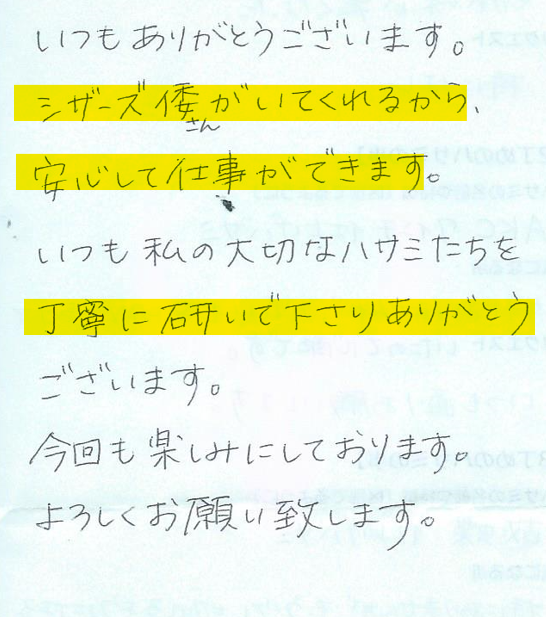 いつもありがとうございます。
シザーズ倭がいてくれるから、
さん
安心して仕事ができます。
いつも私の大切なハサミたちを
丁寧に研いで下さりありがとう
ございます。
今回も楽しみにしております。
よろしくお願い致します。